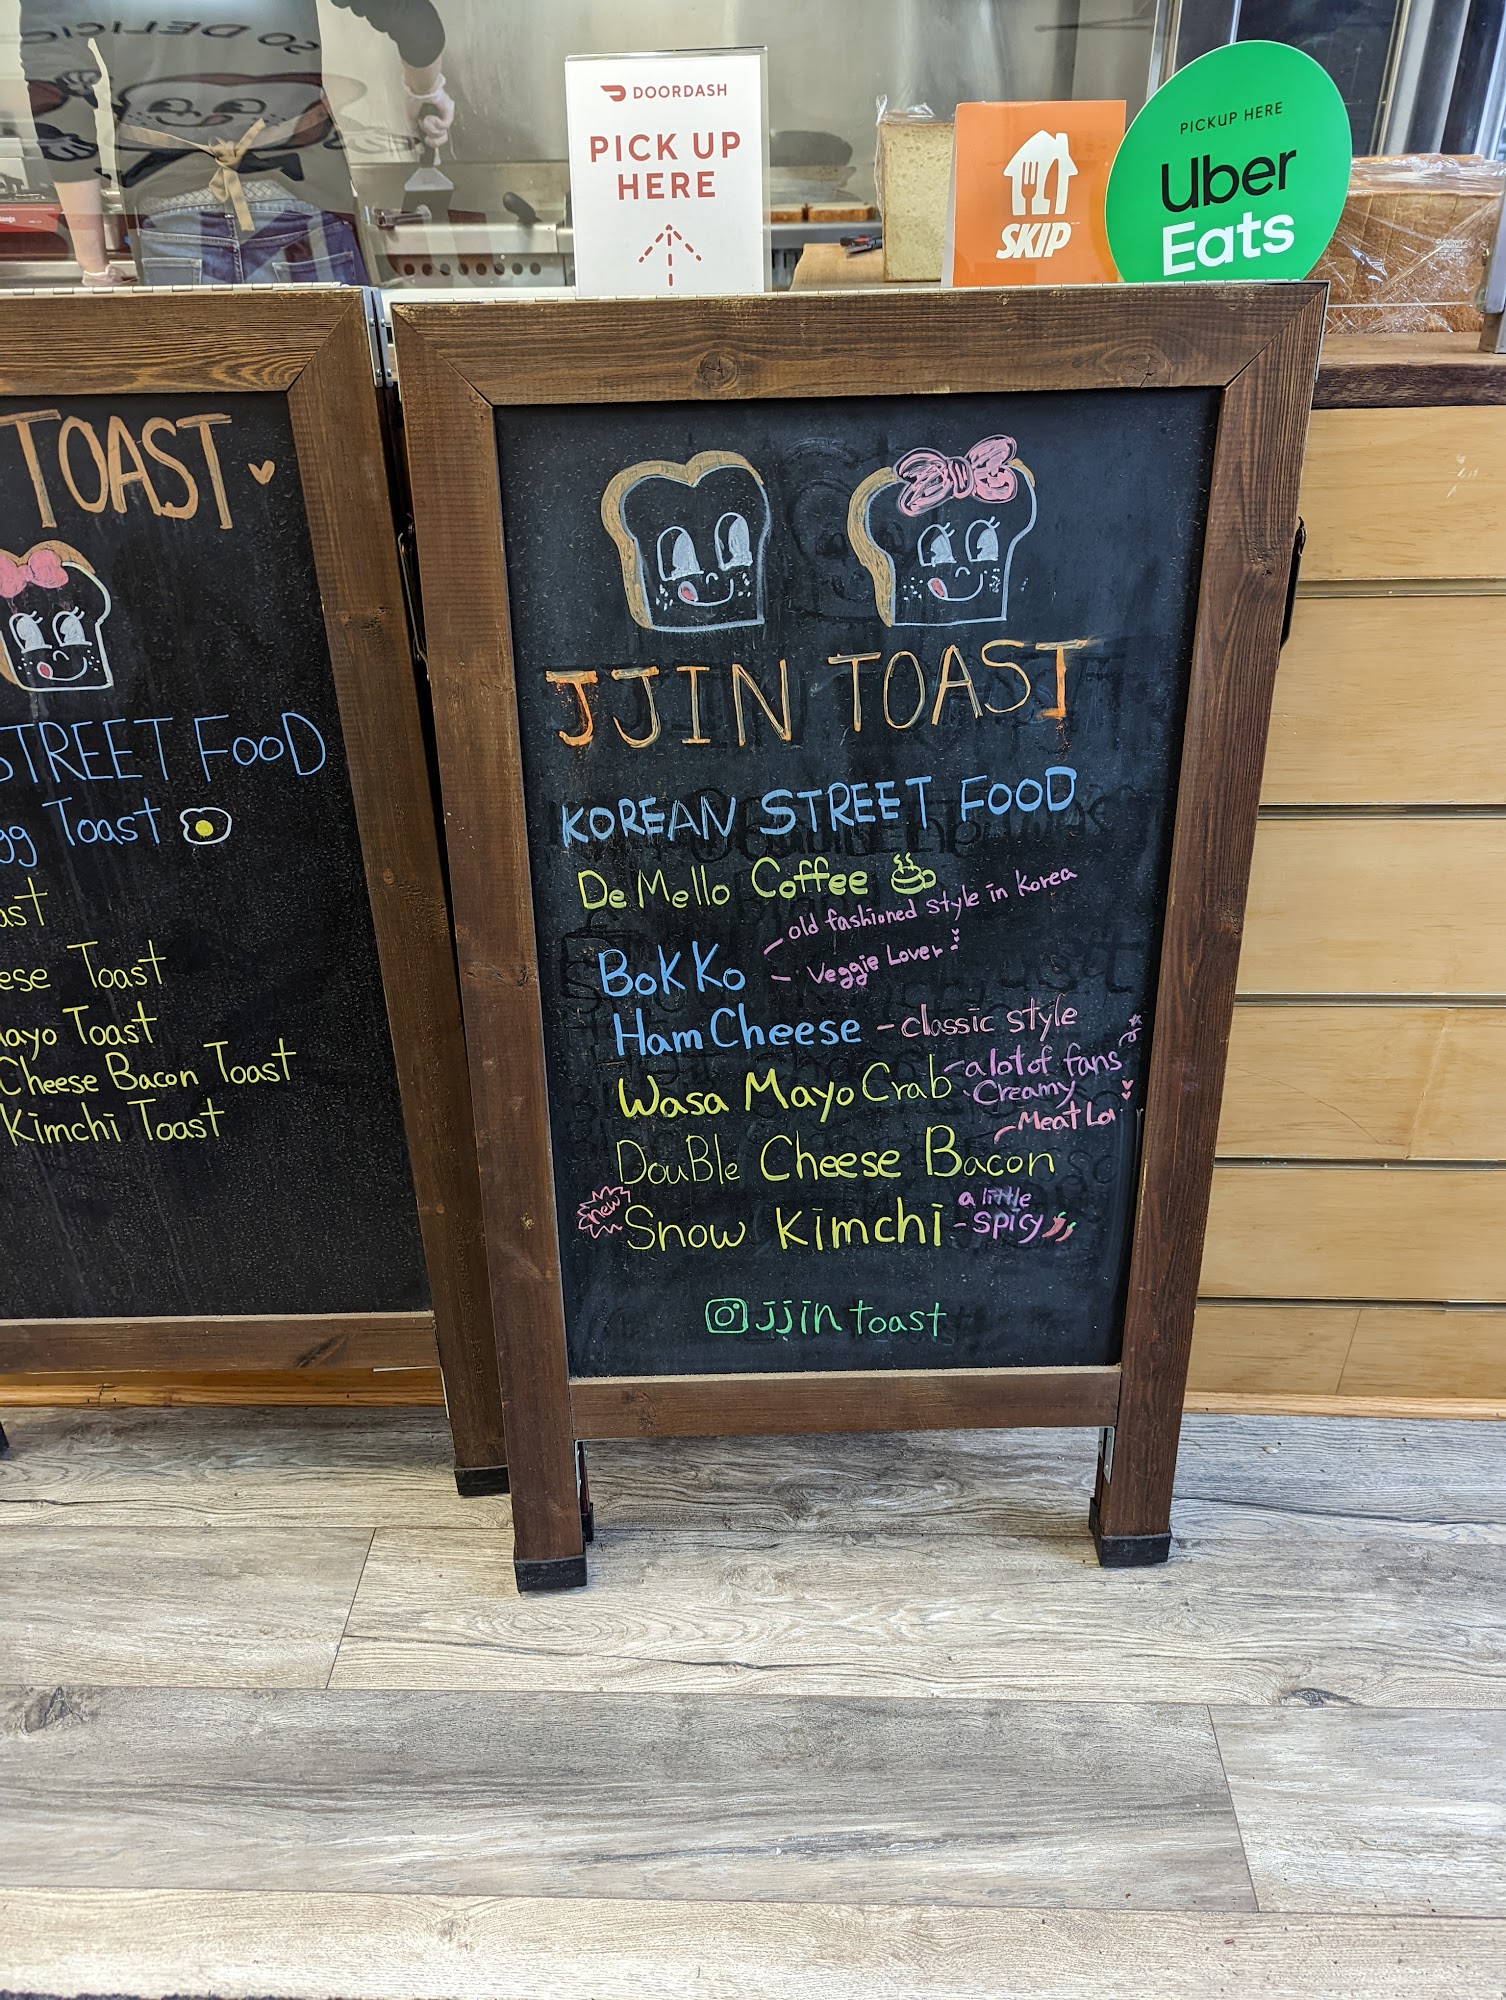 SO DELICIO
DOORDASH
PICK UP
HERE
SKIP
PICKUP HERE
Uber
Eats
TOAST
STREET FOOD
gg Toast
ast
ese Toast
ayo Toast
Cheese Bacon Toast
Kimchi Toast
JJIN TOAST
KOREAN STREET FOOD
De Mello Coffee
BOKKO - old fashioned style in Korea
- Veggie Lover
Ham Cheese - classic style
Wasa Mayo Crab - a lot of fans
· Creamy
- Meat Lo
Double Cheese Bacon
new Snow Kimchi - a little spicy
jjin toast